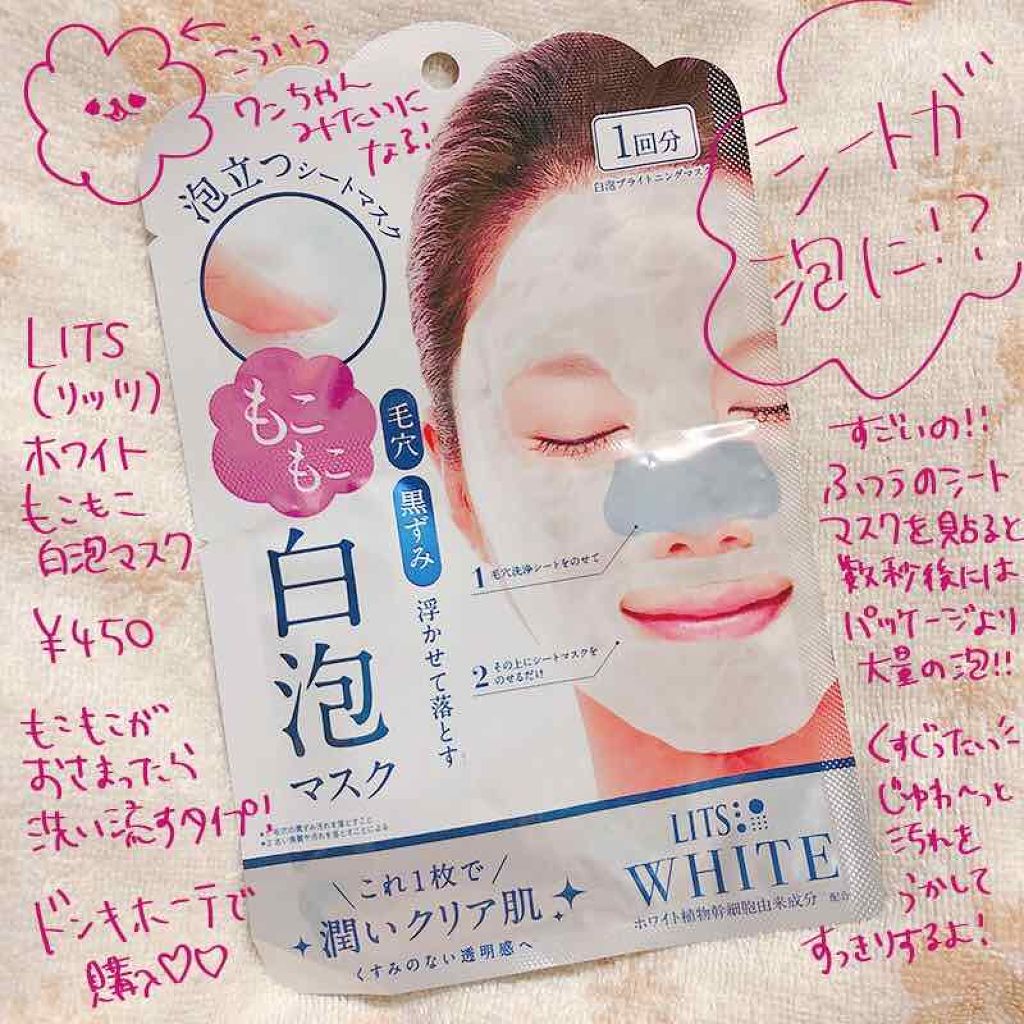 こういう
ワンちゃん
みたいに
なる!
シートが
泡に!?
1回分
白泡ブライトニングマスク
泡立つシートマスク
もこ
もこ
毛穴
黒ずみ
浮かせて落とす
白泡
マスク
1 毛穴洗浄シートをのせて
2 その上にシートマスクを
のせるだけ
LITS
WHITE
ホワイト植物幹細胞由来成分 配合
これ1枚で
潤いクリア肌
くすみのない透明感へ
LITS
(リッツ)
ホワイト
もこもこ
白泡マスク
¥450
もこもこが
おさまったら
洗い流すタイプ!
ドンキホーテで
購入♡♡
すごいの!!
ふつうのシート
マスクを貼ると
数秒後には
パッケージより
大量の泡!!
くすぐったい
じゅわ〜っと
汚れを
うかして
すっきりするよ!